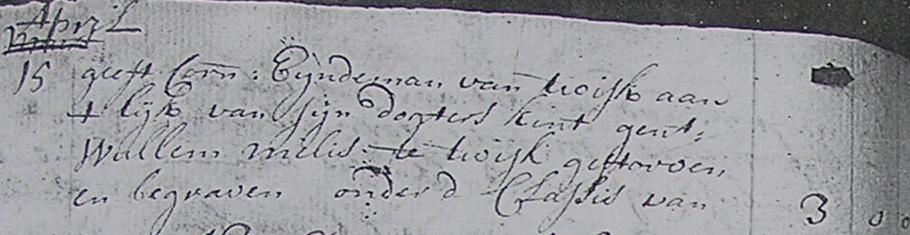 April
15 geeft Corn: Eijndeman van twisk aan
t lijk van sijn dogters kint gent:
Wullem milis te twisk gestorven
en begraven onder d Classis van 3 0 0